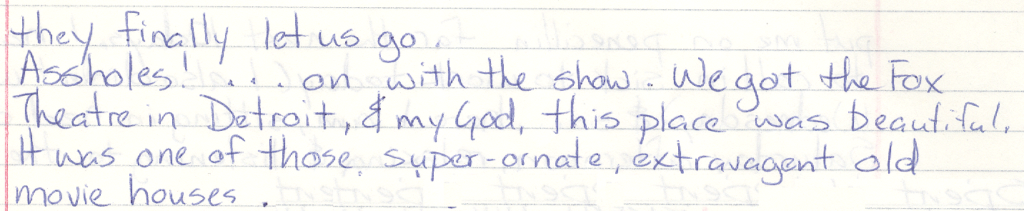 they finally let us go.
Assholes! ... on with the show. We got the Fox
Theatre in Detroit, & my God, this place was beautiful.
It was one of those super-ornate, extravagent old
movie houses.